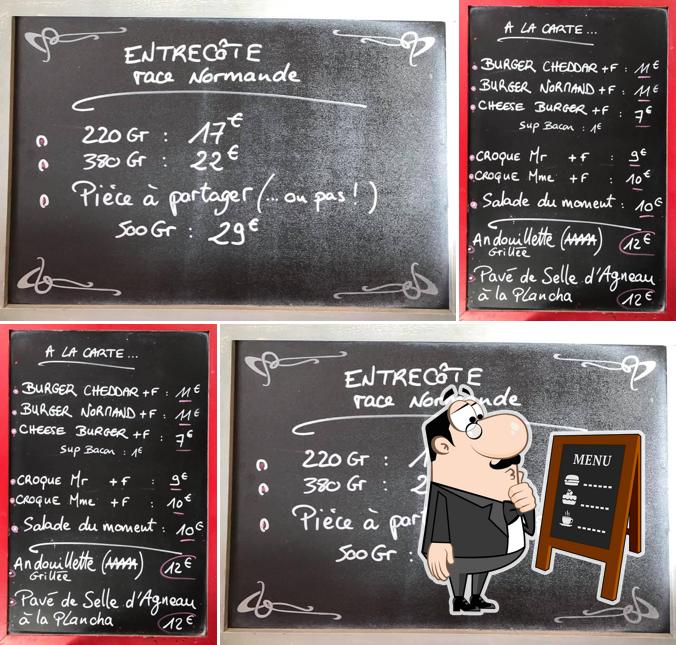 ENTRECôTE
race Normande
220 Gr : 17€
380 Gr : 22€
Pièce à partager (... ou pas !)
500 Gr : 29€
A LA CARTE...
BURGER CHEDDAR + F : 11€
BURGER NORMAND + F : 11€
CHEESE BURGER + F : 7€
Sup Bacon : 1€
CROQUE Mr + F : 9€
CROQUE Mme + F : 10€
Salade du moment : 10€
Andouillette (AAAAA) 12€
Grillée
Pavé de Selle d'Agneau
à la Plancha 12€
A LA CARTE...
BURGER CHEDDAR + F : 11€
BURGER NORMAND + F : 11€
CHEESE BURGER + F : 7€
Sup Bacon : 1€
CROQUE Mr + F : 9€
CROQUE Mme + F : 10€
Salade du moment : 10€
Andouillette (AAAAA) 12€
Grillée
Pavé de Selle d'Agneau
à la Plancha 12€
ENTRECôTE
race Nor nde
220 Gr : 1
380 Gr : 2
Pièce à par
500 Gr :
MENU